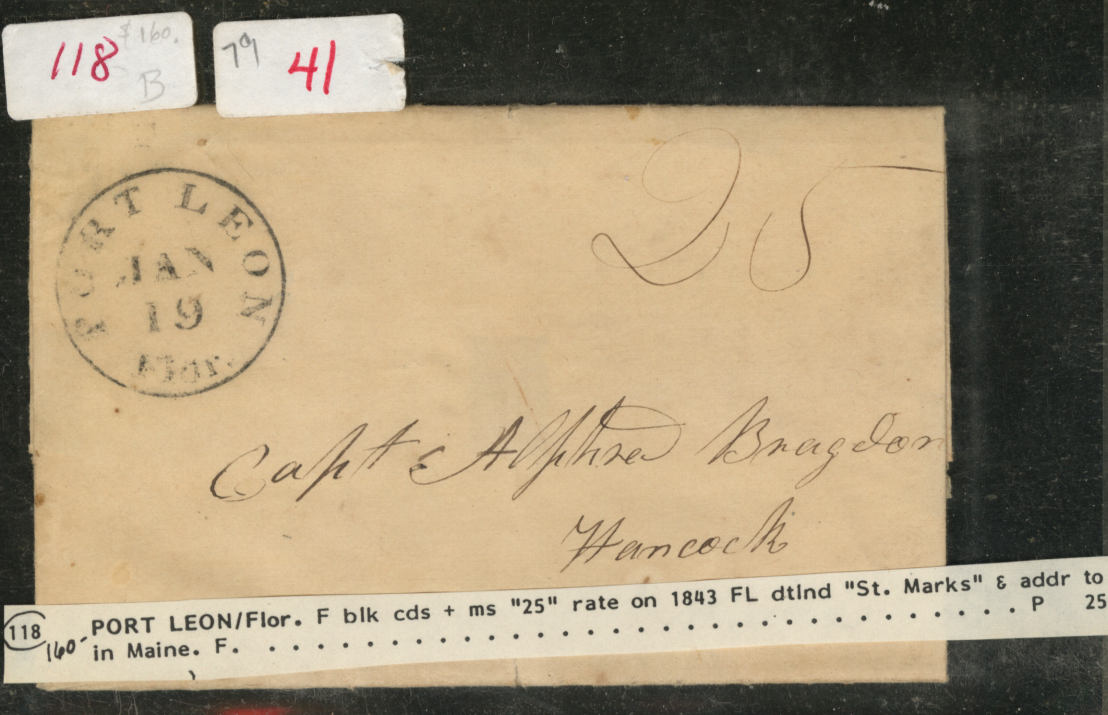 118 $160.
B
79 41
25
PORT LEON
JAN
19
Flor.
Capt Alphred Bragdon
Hancock
118 160- PORT LEON/Flor. F blk cds + ms "25" rate on 1843 FL dtlnd "St. Marks" & addr to
in Maine. F. . . . . . . . . . . . . . . . . . . . . . . . . . . . . . . . . . . . . . P 25